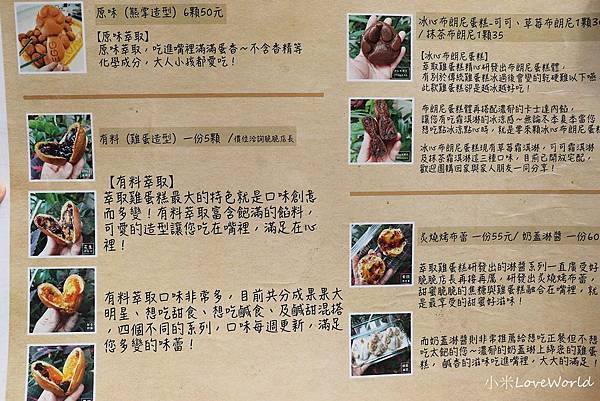 原味（熊掌造型）6顆50元
【原味萃取】
原味萃取，吃進嘴裡滿滿蛋香～不含香精等
化學成分，大人小孩都愛吃！
有料（雞蛋造型）一份5顆／價位洽詢脆脆店長
【有料萃取】
萃取雞蛋糕最大的特色就是口味創意
而多變！有料萃取富含飽滿的餡料，
可愛的造型讓您吃在嘴裡，滿足在心
裡！
有料萃取口味非常多，目前共分成果果大
明星、想吃甜食、想吃鹹食、及鹹甜混搭
，四個不同的系列，口味每週更新，滿足
您多變的味蕾！
冰心布朗尼蛋糕-可可、草莓布朗尼1顆30
/抹茶布朗尼1顆35
【冰心布朗尼蛋糕】
萃取雞蛋糕精心研發出布朗尼蛋糕體，
有別於傳統雞蛋糕冰過後會變的乾硬難以下嚥
此款雞蛋糕卻是越冰越好吃！
布朗尼蛋糕體再搭配濃郁的卡士達內餡，
讓您有吃霜淇淋的冰涼感～無論不本負本當您
想吃點冰涼點心時，就是要來顆冰心布朗尼蛋糕
冰心布朗尼蛋糕現有草莓霜淇淋，可可霜淇淋
及抹茶霜淇淋這三種口味，目前已開放宅配，
歡迎團購回家與家人朋友一同分享！
炙燒烤布蕾 一份55元/ 奶蓋淋醬 一份60
萃取雞蛋糕研發出的淋醬系列一直廣受好
脆脆店長再接再厲，研發出炙燒烤布蕾，
甜蜜脆脆的焦糖與雞蛋糕融合在嘴裡，就
是最享受的甜蜜好滋味！
而奶蓋淋醬則非常推薦給想吃正餐但不想
吃太飽的您～濃郁的奶蓋淋上綿密的雞蛋
糕，鹹香的滋味吃進嘴裡，大大的滿足！
小米LoveWorld